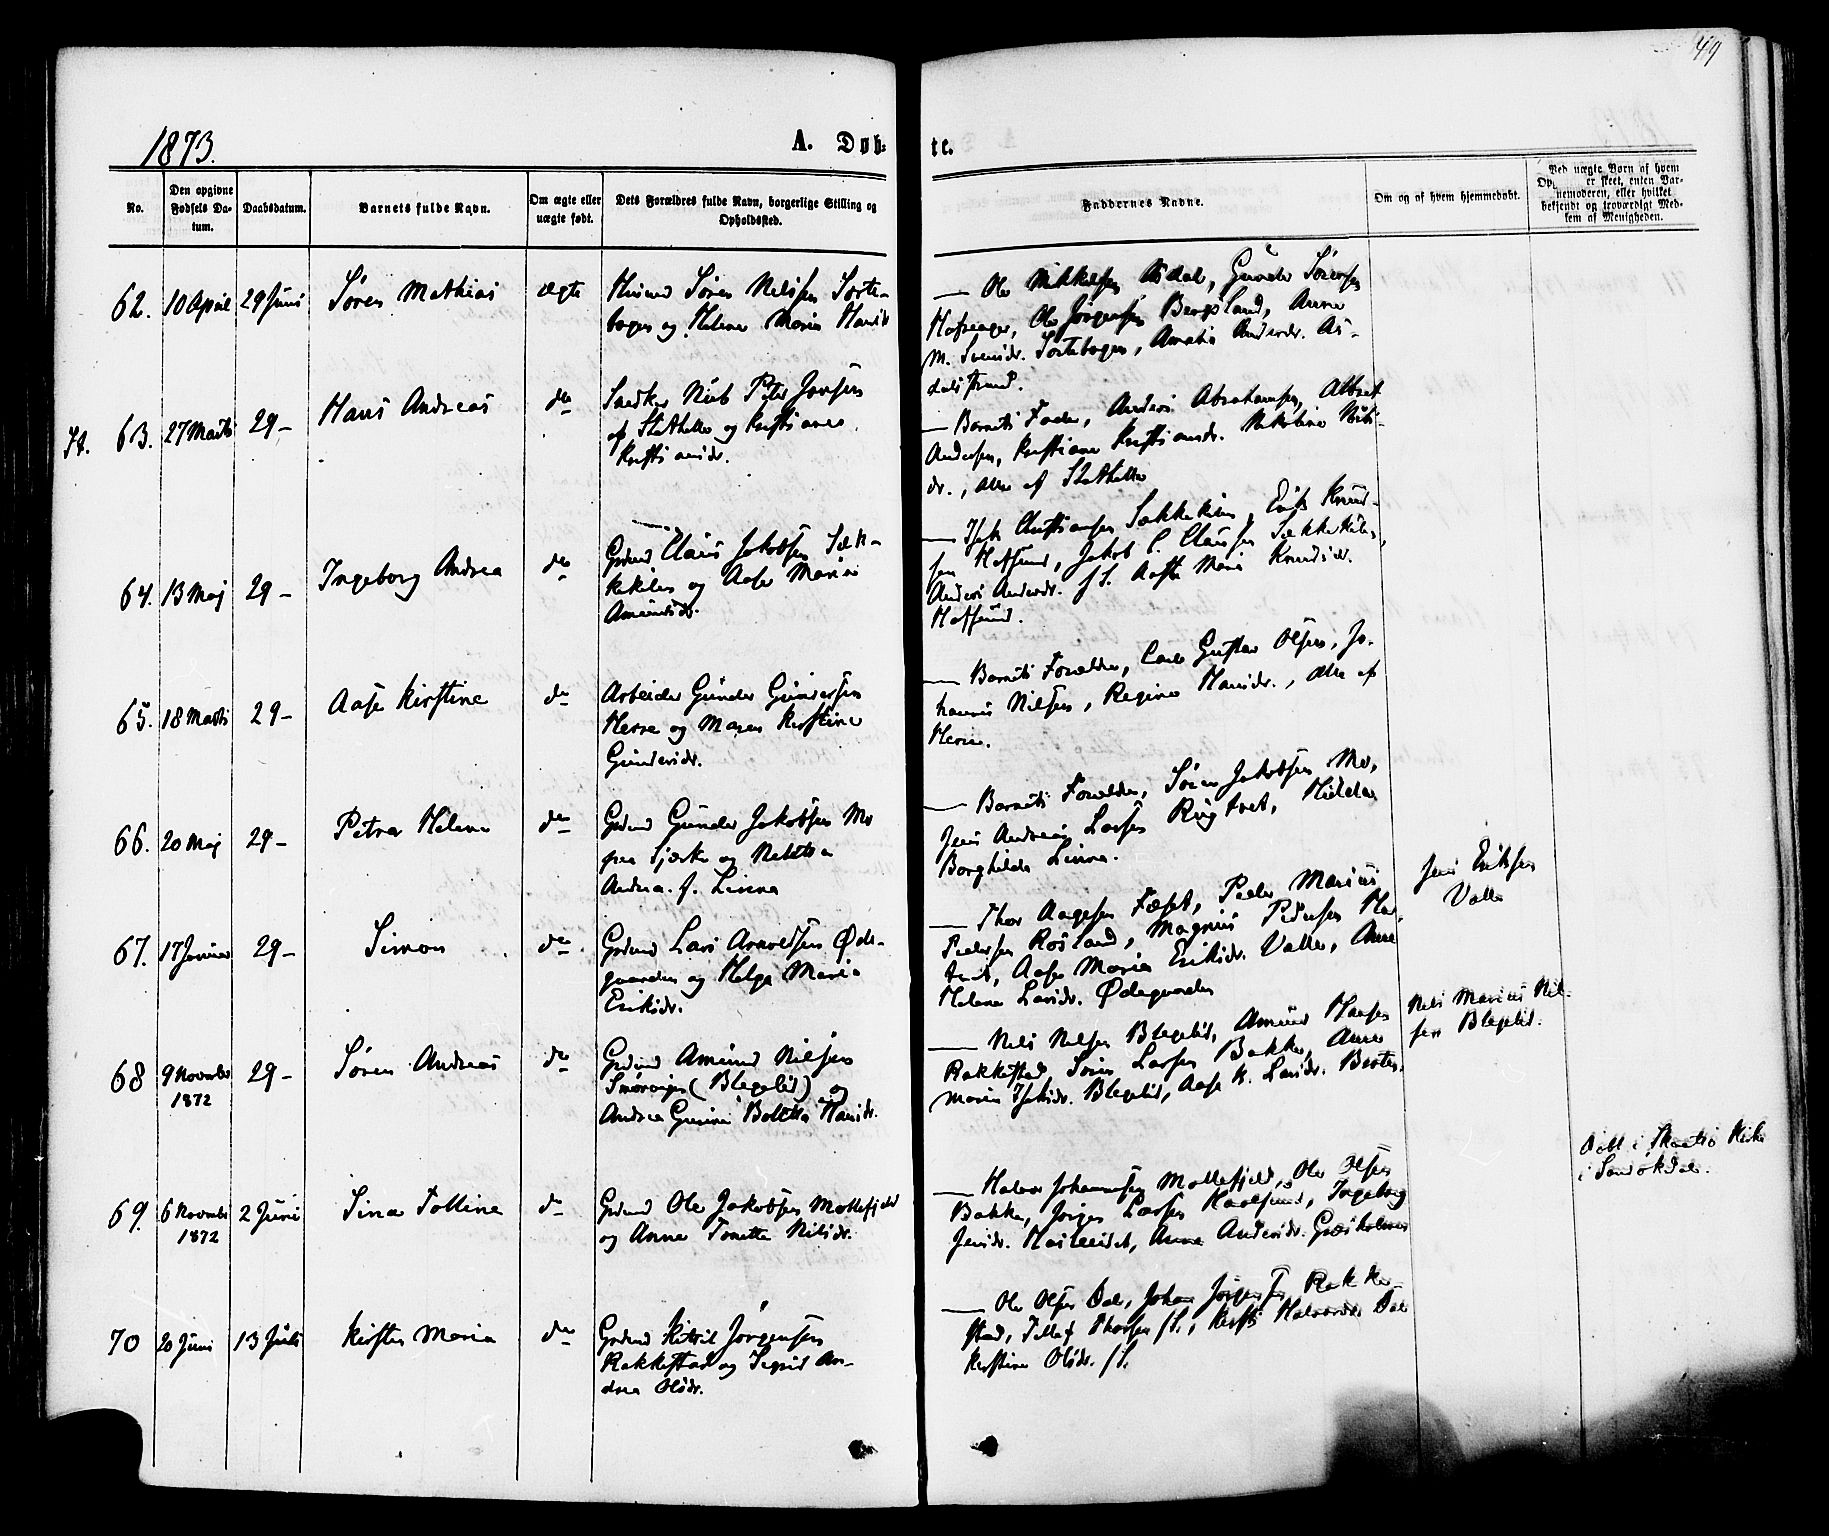 49
1873.
A. Døb-
te.
No.
Den opgivne
Fødsels Da-
tum.
Daabsdatum.
Barnets fulde Navn.
Om ægte eller
uægte født.
Dets Forældres fulde Navn, borgerlige Stilling og
Opholdssted.
Faddernes Navne.
Om og af hvem hjemmedøbt.
Ved uægte Børn af hvem
Op er skeet, enten Bar-
nemoderen, eller hvilket
bekjendt og troværdigt Med-
lem af Menigheden.
62. 10 April 29 Juni Søren Mathias ægte
Husmd Søren Nilssen Sorte-
bogen og Helene Maria Hansdr
— Ole Nikkelsen Asdal, Gunder Sørensen
Hafsager, Ole Jørgensen Bergsland, Anne
M. Svensdr. Sortebogen, Amalie Andersdr. As-
dalstrand.
63. 27 Marts 29 — Hans Andreas do
Snedker Niels Peter Jensen
af Stathelle og Kristiane
Kristiansdr.
— Barnets Fader, Anders Abrahamsen, Albret
Andersen, Kristiane Kristiansdr. Nikoline Niels-
dr., alle af Stathelle
64. 13 Maj 29 — Ingeborg Andrea do
Grdmd Claus Jakobsen Sæk-
kekilen og Aase Maria
Amundsdr.
— Isak Christiansen Sækkekilen, Erik Knud-
sen Hafsund, Jakob C. Clausen Sækkekilen,
Anders Andersdr. f.S. Aaste Maria Knudsdr.
Hafsund.
65. 18 Marts 29 — Aase Kirstine do
Arbeider Gunder Gundersen
Herre og Maren Kirstine
Gundersdr.
— Barnets Forældre, Carl Gustav Olsen, Jo-
hannes Nilsen, Regine Hansdr., alle af
Herre.
66. 20 Maj 29 — Petra Helene do
Grdmd Gunder Jakobsen Mo
paa og
Andrea f. Linna
— Barnets Forældre, Søren Jakobsen Mo,
Jens Andreas Larsen Rugtvet, Hilda
Borghilda Linna.
67. 17 Januar 29 — Simon do
Grdmd Lars Arnoldsen Øde-
gaarden og Helge Maria
Eriksdr.
— Thor Aagesen Fæset, Peder Marius
Pedersen Rosland, Magnus Pedersen
Aase Maria Eriksdr. Valle, Anne
Helene Larsdr. Ødegaarden
Jens Eriksen
Valle
68 9 November 1872 29 — Søren Andreas do
Grdmd Amund Nilsen
(Blegelid) og
Andrea Gurine Boletta Hansdr.
— Nils Nilsen Blegelid, Amund Hansen
Rakkestad, Søren Larsen Bakke, Anne
Maria Isaksdr. Blegelid, Aase K. Larsdr.
Nils Marius Nil-
sen Blegelid.
69. 6 November 1872 2 Juni Sina Tolline do
Grdmd Ole Jakobsen Mollefjeld
og Anne Tonette Nilsdr.
— Halvor Johannesen Mollefjeld, Ole Olsen
Bakke, Jørgen Larsen Ingeborg
Jensdr. Anne Andersdr. Græsholmen
Døbt i Skaatø Kirke
i Sandøkedal.
70 20 Juni 13 Juli Kirsten Maria do
Grdmd Kittil Jørgensen
Rakkestad og Sigrid An-
drea Olsdr.
— Ole Olsen Dal, Johan Jørgensen Rakke-
stad, Tellef Thorsen f.S., Kirsti Halvorsdr Dal
Kirstine Olsdr. f.S.